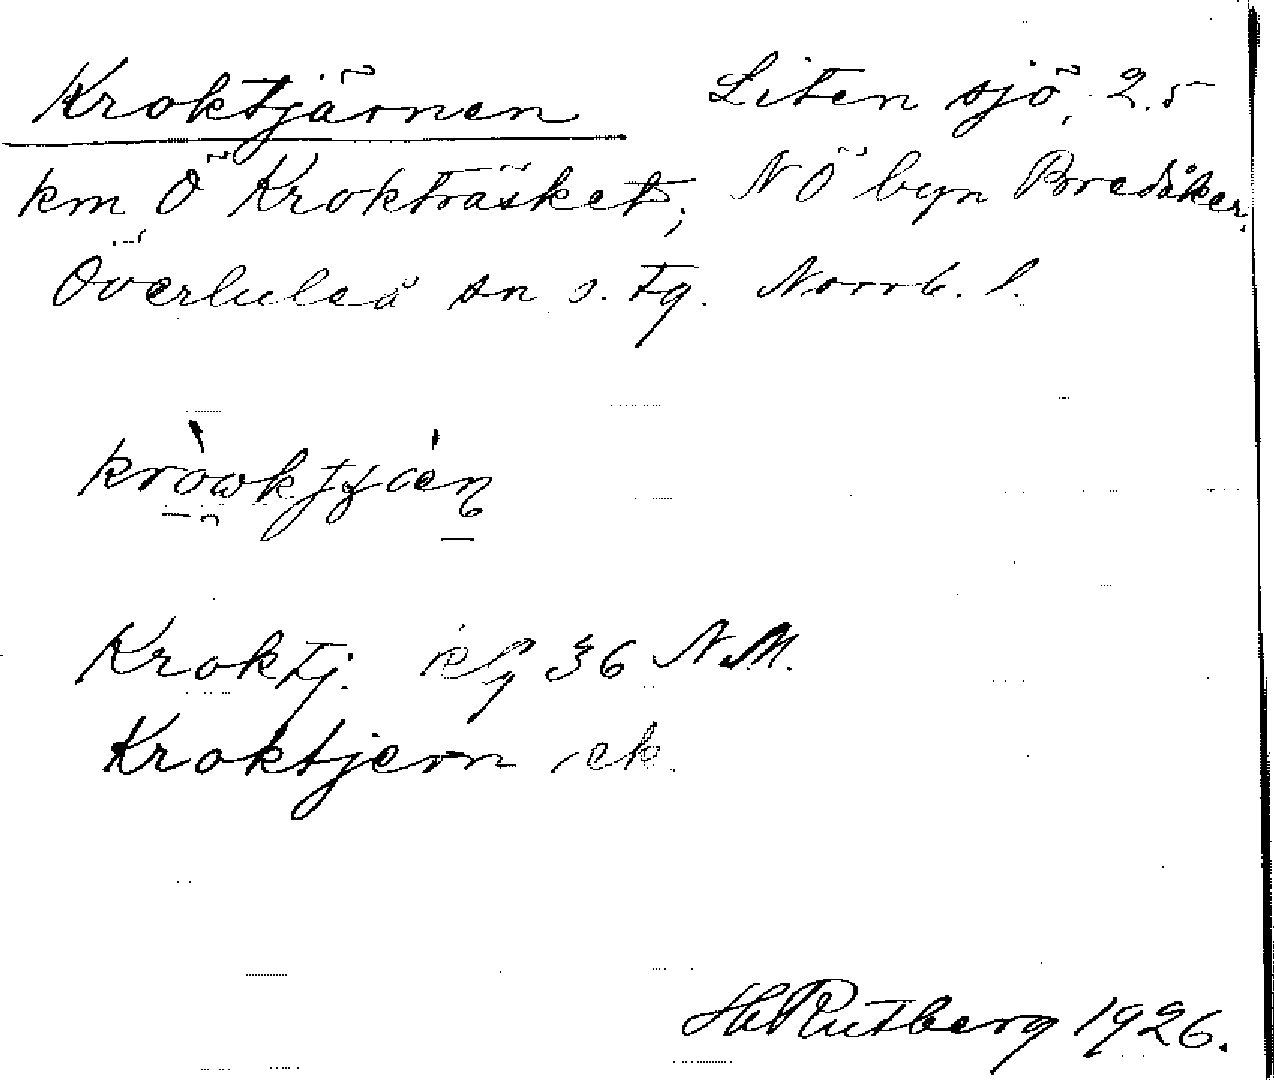 Kroktjärnen Liten sjö, 2.5
km Ö Krokträsket, NÖ byn Bredåker,
Överluleå sn s. tg. Norrb. l.
Kroktj. kfg 36 N.M.
Kroktjern ek.
H Rutberg 1926.